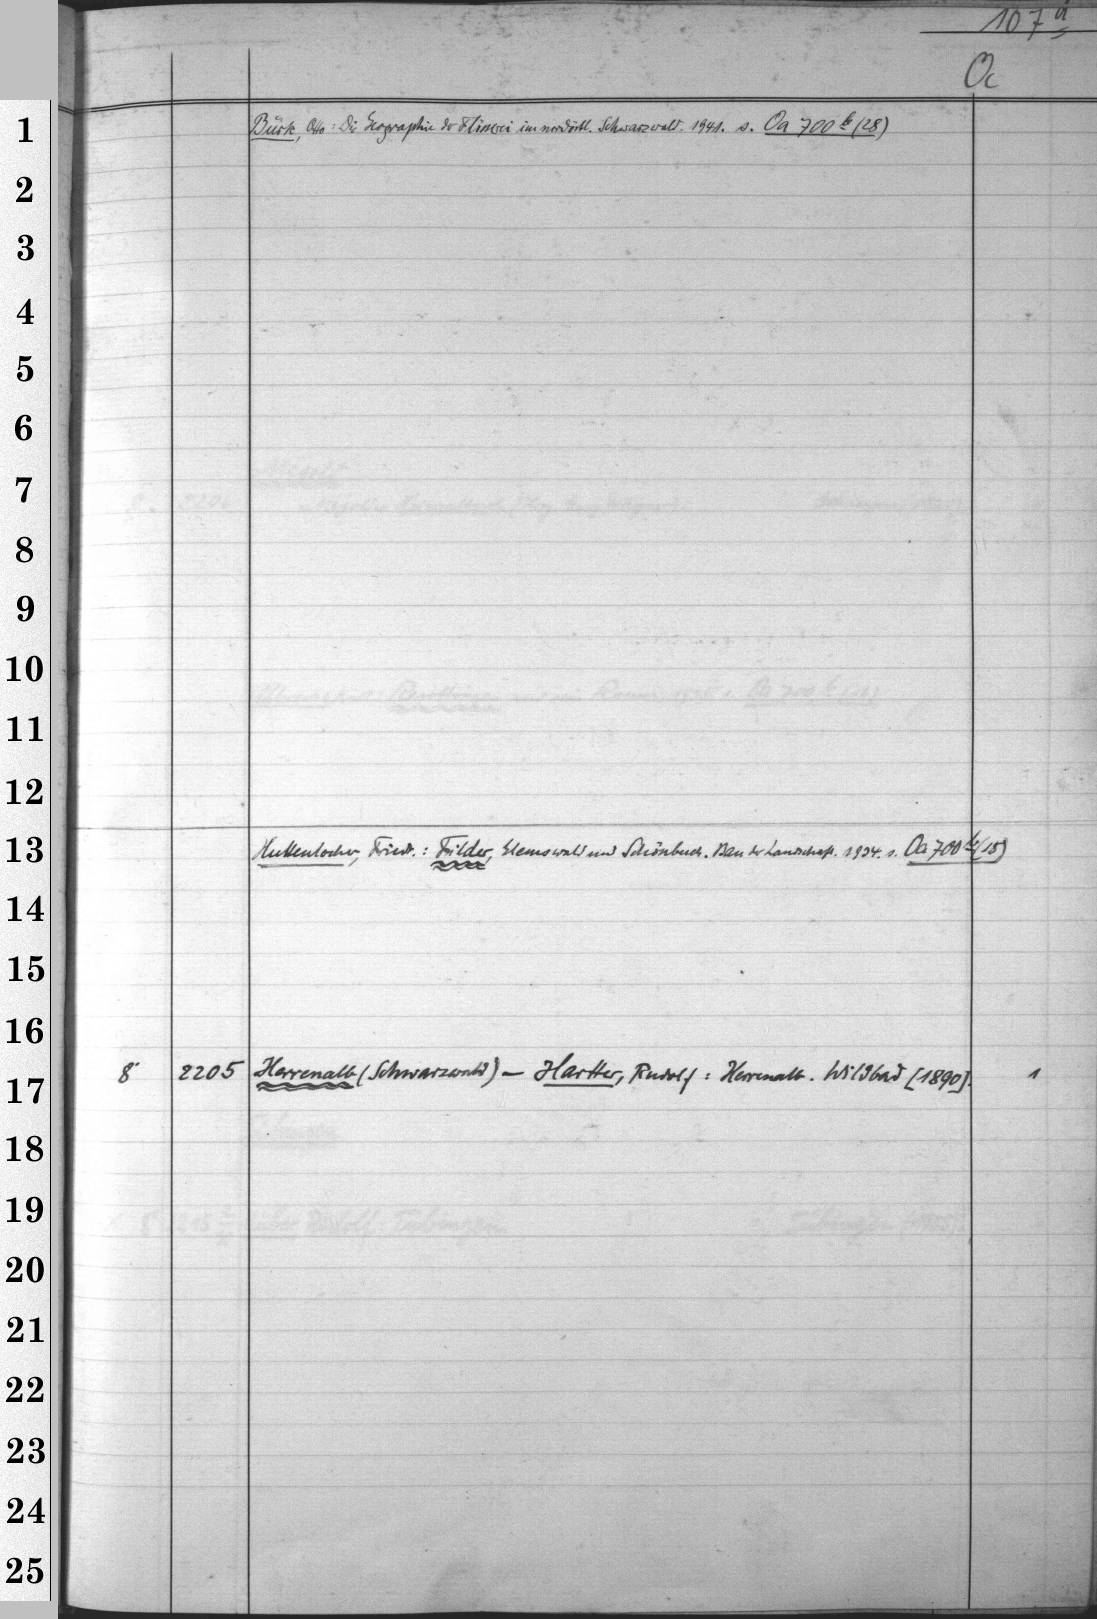 107 a
Oc
1
Bürk, Otto: Die Geographie der Flösserei im nordöstl. Schwarzwald. 1941. s. Oa 700 b (28)
2
3
4
5
6
7
8
9
10
11
12
13
Huttenlocher, Friedr.: Filder, Glemswald und Schönbuch. Bau der Landschaft. 1934. s. Oa 700 b (15)
14
15
16
17
8 2205 Herrenalb (Schwarzwald) — Hartter, Rudolf: Herrenalb. Wildbad [1890]. 1
18
19
20
21
22
23
24
25